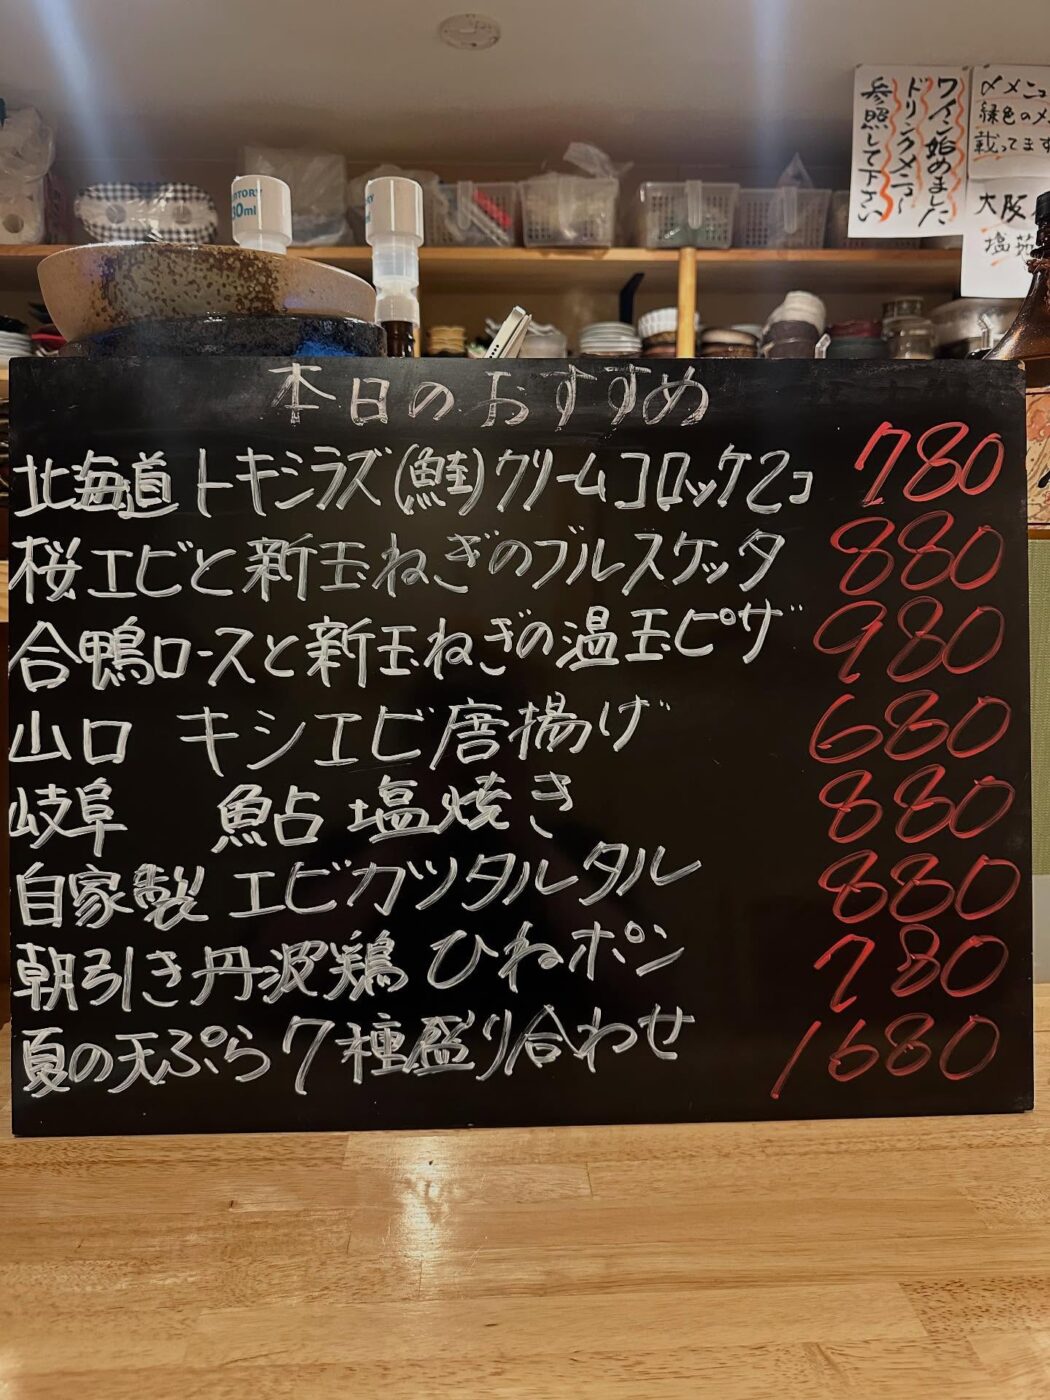 ワイン始めました
ドリンクメニュー
参照して下さい
〆メニュ
緑色のメ
載ってます
大阪
TORY
30ml
本日のおすすめ
北海道 トキシラズ(鮭)クリームコロッケ2コ 780
桜エビと新玉ねぎのブルスケッタ 880
合鴨ロースと新玉ねぎの温玉ピザ 980
山口 キシエビ唐揚げ 680
岐阜 鮎塩焼き 880
自家製 エビカツタルタル 880
朝引き丹波鶏 ひねポン 780
夏の天ぷら7種盛り合わせ 1680